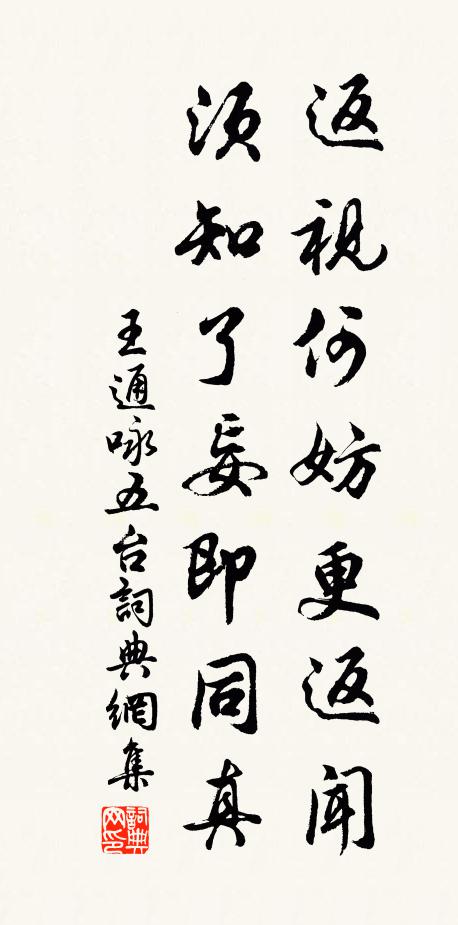 返視何妨更返聞
須知了妄即同真
王通咏五台詞典網集
詞典网印